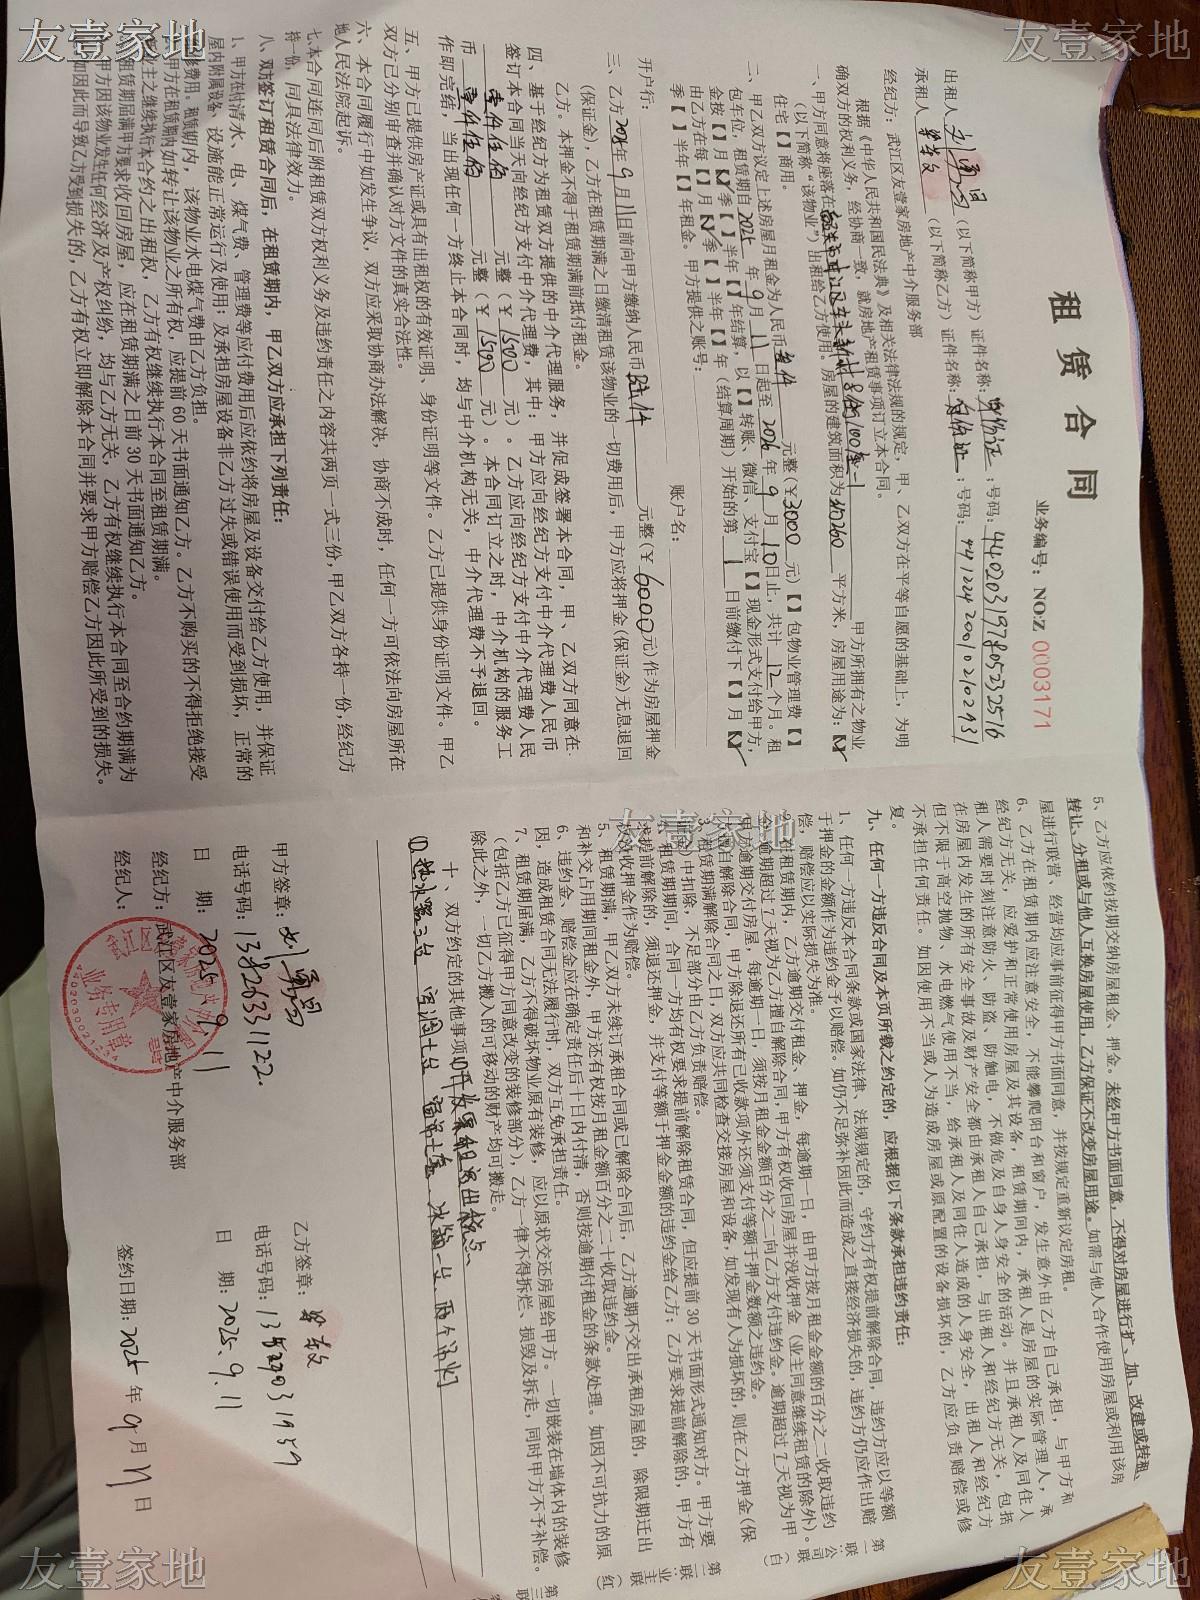 友壹家地
友壹家地
租赁合同
业务编号：NO:Z 0003171
出租人
（以下简称甲方）证件名称：身份证：号码：440203197805232516
承租人
（以下简称乙方）证件名称：身份证：号码：441224200102102931
经纪方：武江区友壹家房地产中介服务部
根据《中华人民共和国民法典》及相关法律法规的规定，甲、乙双方在平等自愿的基础上，为明
确双方的权利义务，经协商一致，就房地产租赁事项订立本合同。
一、甲方同意将座落在
甲方所拥有之物业
（以下简称“该物业”）出租给乙方使用。房屋的建筑面积为 平方米，房屋用途为：【✓】
住宅【 】商用。
二、甲乙双方议定上述房屋月租金为人民币叁仟元整（￥3000元）【 】包物业管理费【 】
包车位，租赁期自2025年9月11日起至2026年9月10日止，共计12个月。租
金按【 】月【✓】季【 】半年【 】年结算，以【 】转账、微信、支付宝【 】现金形式支付给甲方，
由乙方在每【 】月【✓】季【 】半年【 】年（结算周期）开始的第1日前缴付下【 】月【✓】
季【 】半年【 】年租金，甲方提供之账号：
开户行： 账户名：
三、乙方2025年9月11日前向甲方缴纳人民币陆仟元整（￥6000元）作为房屋押金
（保证金），乙方在租赁期满之日缴清租赁该物业的一切费用后，甲方应将押金（保证金）无息退回
乙方。本押金不得于租赁期满前抵付租金。
四、基于经纪方为租赁双方提供的中介代理服务，并促成签署本合同，甲、乙双方同意在
签订本合同当天向经纪方支付中介代理费，其中：甲方应向经纪方支付中介代理费人民币
壹仟伍佰元整（￥1500元）。乙方应向经纪方支付中介代理费人民
币壹仟伍佰元整（￥1500元）。本合同订立之时，中介机构的服务工
作即完结，当出现任何一方终止本合同时，均与中介机构无关，中介代理费不予退回。
五、甲方已提供房产证或具有出租权的有效证明、身份证明等文件。乙方已提供身份证明文件。甲乙
双方已分别审查并确认对方文件的真实合法性。
六、本合同履行中如发生争议，双方应采取协商办法解决，协商不成时，任何一方可依法向房屋所在
地人民法院起诉。
七、本合同连同后附租赁双方权利义务及违约责任之内容共两页一式三份，甲乙双方各持一份，经纪方
持一份，同具法律效力。
八、双方签订租赁合同后，在租赁期内，甲乙双方应承担下列责任：
1、甲方在附清水、电、煤气费、管理费等应付费用后应依约将房屋及设备交付给乙方使用，并保证
屋内附属设备、设施能正常运行及使用；及承担房屋设备非乙方过失或错误使用而受到损坏，正常的
修费用。租赁期内，该物业水电煤气费由乙方负担。
甲方在租赁期内如转让该物业之所有权，应提前60天书面通知乙方。乙方不购买的不得拒绝接受
业主之继续执行本合约之出租权，乙方有权继续执行本合同至租赁期满。
租赁期届满甲方要求收回房屋，应在租赁期满之日前30天书面通知乙方。
甲方因该物业发生任何经济及产权纠纷，均与乙方无关，乙方有权继续执行本合同至合约期满为
如因此而导致乙方受到损失的，乙方有权立即解除本合同并要求甲方赔偿乙方因此所受到的损失。
5、乙方应依约按期交纳房屋租金、押金。未经甲方书面同意，不得对房屋进行扩、加、改建或转租、
转让、分租或与他人互换房屋使用，乙方保证不改变房屋用途。如需与他人合作使用房屋或利用该房
屋进行联营、经营均应事前征得甲方书面同意，并按规定重新议定房租。
6、乙方在租赁期内应注意安全，不能攀爬阳台和窗户，发生意外由乙方自己承担，与甲方和
经纪方无关，应爱护和正常使用房屋及其设备，租赁期间内，承租人是房屋的实际管理人，承
租人需要时刻注意防火、防盗、防触电，不做危及自身人身安全的活动。并且承租人及同住人
在房屋内发生的所有安全事故及财产安全都由承租人自己承担，与出租人和经纪方无关，包括
但不限于高空抛物、水电燃气使用不当，给承租人及同住人造成的人身安全，出租人和经纪方
不承担任何责任。如因使用不当或人为造成房屋或原配置的设备损坏的，乙方应负责赔偿或修
复。
九、任何一方违反合同及本页所载之约定的，应根据以下条款承担违约责任：
1、任何一方违反本合同条款或国家法律、法规规定的，守约方有权提前解除合同，违约方应以等额
于押金的金额作为违约金予以赔偿。如仍不足弥补因此而造成之直接经济损失的，违约方仍应作出赔
偿，赔偿应以实际损失为准。
2、在租赁期内，乙方逾期交付租金、押金，每逾期一日，由甲方按月租金金额的百分之二收取违约
金，逾期超过7天视为乙方擅自解除合同，甲方有权收回房屋并没收押金（业主同意继续租赁的除外）。
甲方逾期交付房屋，每逾期一日，须按月租金金额百分之二向乙方支付违约金。逾期超过7天视为甲
方擅自解除合同，甲方除退还所有已收款项外还须支付等额于押金数额之违约金。
3、租赁期满解除合同之日，双方应共同检查交接房屋和设备，如发现有人为损坏的，则在乙方押金（保
证金）中扣除，不足部分由乙方负责赔偿。
4、租赁期期间，合同一方均有权要求提前解除租赁合同，但应提前30天书面形式通知对方。甲方要
求提前解除的，须退还押金，并支付等额于押金金额的违约金给乙方；乙方要求提前解除的，甲方有
权没收押金作为赔偿。
5、租赁期满，甲乙双方未续订承租合同或已解除合同后，乙方逾期不交出承租房屋的，除限期迁出
和补交占用期间租金外，甲方还有权按月租金额百分之二十收取违约金。
6、违约金、赔偿金应在确定责任后十日内付清，否则按逾期付租金的条款处理。如因不可抗力的原
因，造成租赁合同无法履行时，双方互免承担责任。
7、租赁期届满，乙方不得破坏物业原有装修，应以原状交还房屋给甲方。一切嵌装在墙体内的装修
（包括乙方已征得甲方同意改变的装修部分），乙方一律不得拆烂、损毁及拆走，同时甲方不予补偿。
除此之外，一切乙方搬入的可移动的财产均可搬走。
十、双方约定的其他事项
甲方签章：
电话号码：13826331122.
日 期：2025 9 11
经纪方：武江区友壹家房地产中介服务部
经纪人：
乙方签章：
电话号码：
日 期：2025.9.11
签约日期：2025年9月11日
业务专用章
第一联 公司联（白）
第二联 业主联（红）
友壹家地
友壹家地
友壹家地